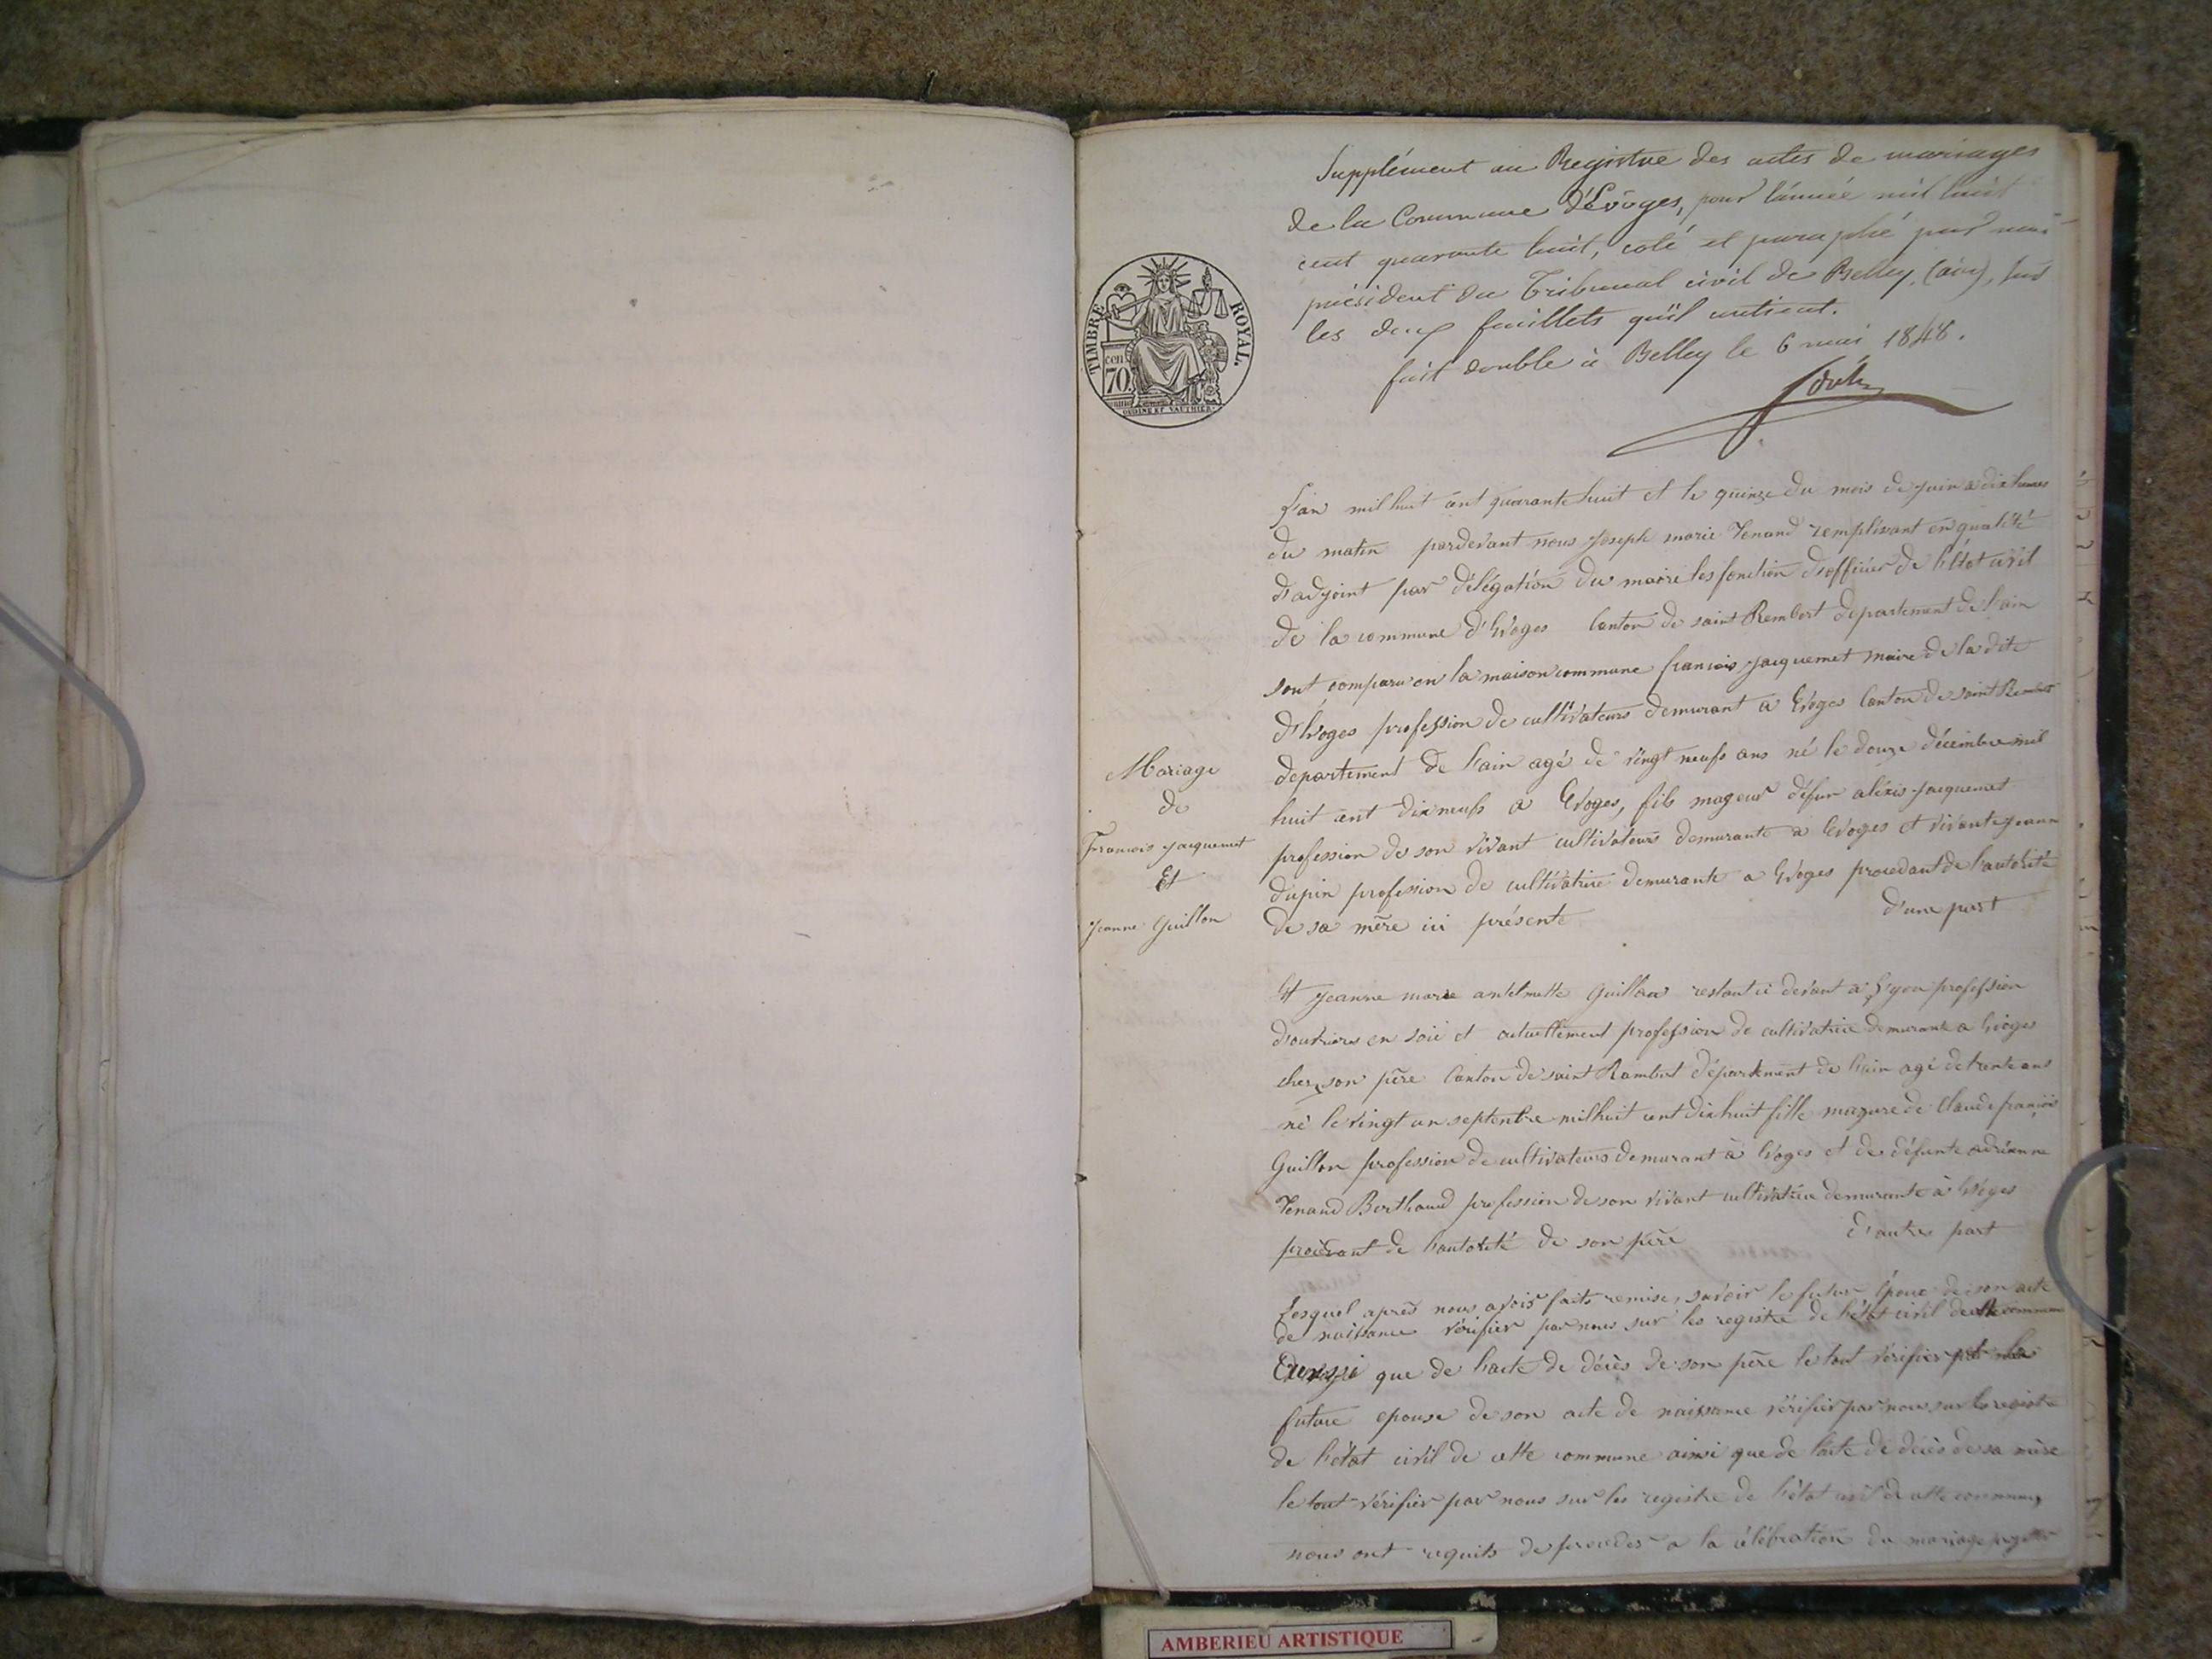 Supplément au Registre des actes de mariages
de la Commune d'Evoges, pour l'année mil huit
cent quarante huit, coté et paraphé par nous
président du Tribunal civil de Belley, (ain), sur
les deux feuillets qu'il contient.
fait double à Belley le 6 mai 1848.
TIMBRE ROYAL
cen
70
OUDINE ET VAUTHIER
L'an mil huit cent quarante huit et le quinze du mois de juin a dix heures
du matin pardevant nous Joseph marie Venand remplissant en qualité
d'adjoint par délégation du maire les fonction d'officier de l'état civil
de la commune d'Evoges Canton de saint Rembert departement de l'ain
sont comparu en la maison commune francois jacquemet maire de la dite
d'Evoges profession de cultivateurs demurant a Evoges Canton de saint Rembert
departement de l'ain agé de vingt neufs ans né le douze décembre mil
huit cent dix neufs a Evoges, fils mageur défun aléxis jacquemet
profession de son vivant cultivateurs demurante a Evoges et vivante jeanne
dupin profession de cultivatrice demurante a Evoges procedant de l'autorité
de sa mère ici présente d'une part
Mariage
de
Francois jacquemet
Et
jeanne Guillon
Et jeanne marie antelmette Guillon restant ci devant a Lyon profession
d'ouvriere en soie et actuellement profession de cultivatrice demurante a Evoges
chez son père Canton de saint Rambert département de l'ain agé de trente ans
né le vingt un septembre mil huit cent dix huit fille mageure de Claude françois
Guillon profession de cultivateurs demurant à Evoges et de défunte adrianne
Venand Berthaud profession de son vivant cultivatrice demurante à Evoges
procédant de l'autorité de son père d'autre part
Lesquel après nous avoir faits remise, savoir le futur Epoux de son acte
de naissance vérifier par nous sur les registre de l'état civil de cette commune
que de l'acte de décès de son père le tout vérifier
future epouse de son acte de naissance vérifier par nous sur les registre
de l'état civil de cette commune ainsi que de l'acte de décès de sa mère
le tout vérifier par nous sur les registre de l'état civil de cette commune
nous ont requits de proceder a la célébration du mariage
AMBERIEU ARTISTIQUE